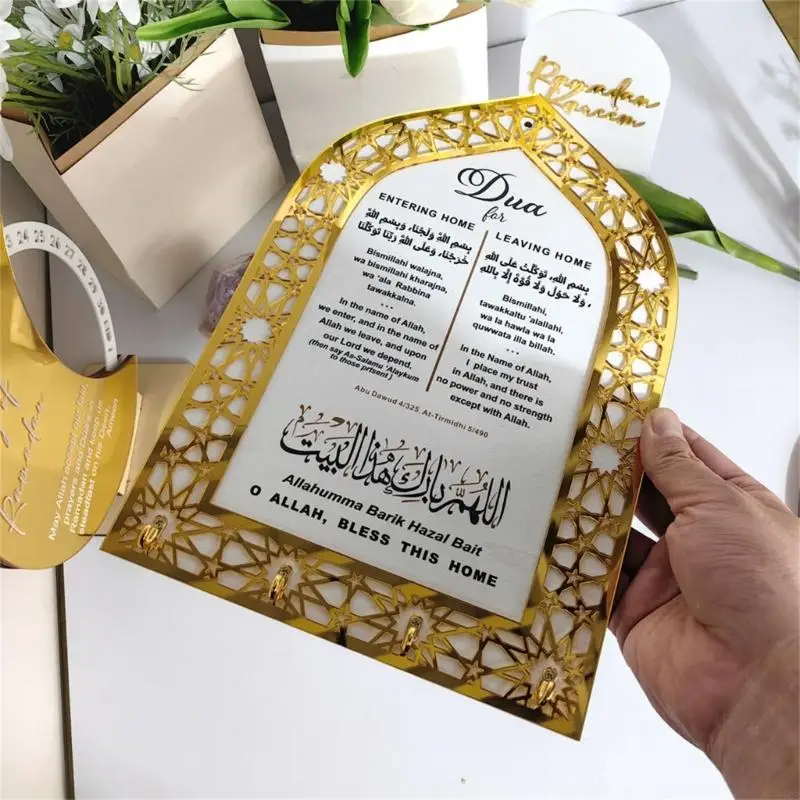 Dua
for
ENTERING HOME
بِسْمِ اللَّهِ وَلَجْنَا، وَبِسْمِ اللَّهِ
خَرَجْنَا، وَعَلَى اللَّهِ رَبِّنَا تَوَكَّلْنَا
Bismillahi walajna,
wa bismillahi kharajna,
wa 'ala Rabbina
tawakkalna.
***
In the name of Allah,
we enter, and in the name of
Allah we leave, and upon
our Lord we depend,
(then say As-Salamu 'Alaykum
to those prtsent]
LEAVING HOME
بِسْمِ اللَّهِ، تَوَكَّلْتُ عَلَى اللَّهِ
، وَلَا حَوْلَ وَلَا قُوَّةَ إِلَّا بِاللَّهِ
Bismillahi,
tawakkaltu 'alallahi,
wa la hawla wa la
quwwata illa billah.
***
In the Name of Allah,
( place my trust
in Allah, and there is
no power and no strength
except with Allah.
Abu Dawud 4/325, At-Tirmidhi 5/490
اللهم بارك هذا البيت
Allahumma Barik Hazal Bait
O ALLAH, BLESS THIS HOME
Ramadan
Kareem
3 24 25 26 27 28 29 30
of
Ramadan
May Allah accept our fast
prayers and Duas in
Ramadan and keep us
steadfast on his Deen.
Ameen